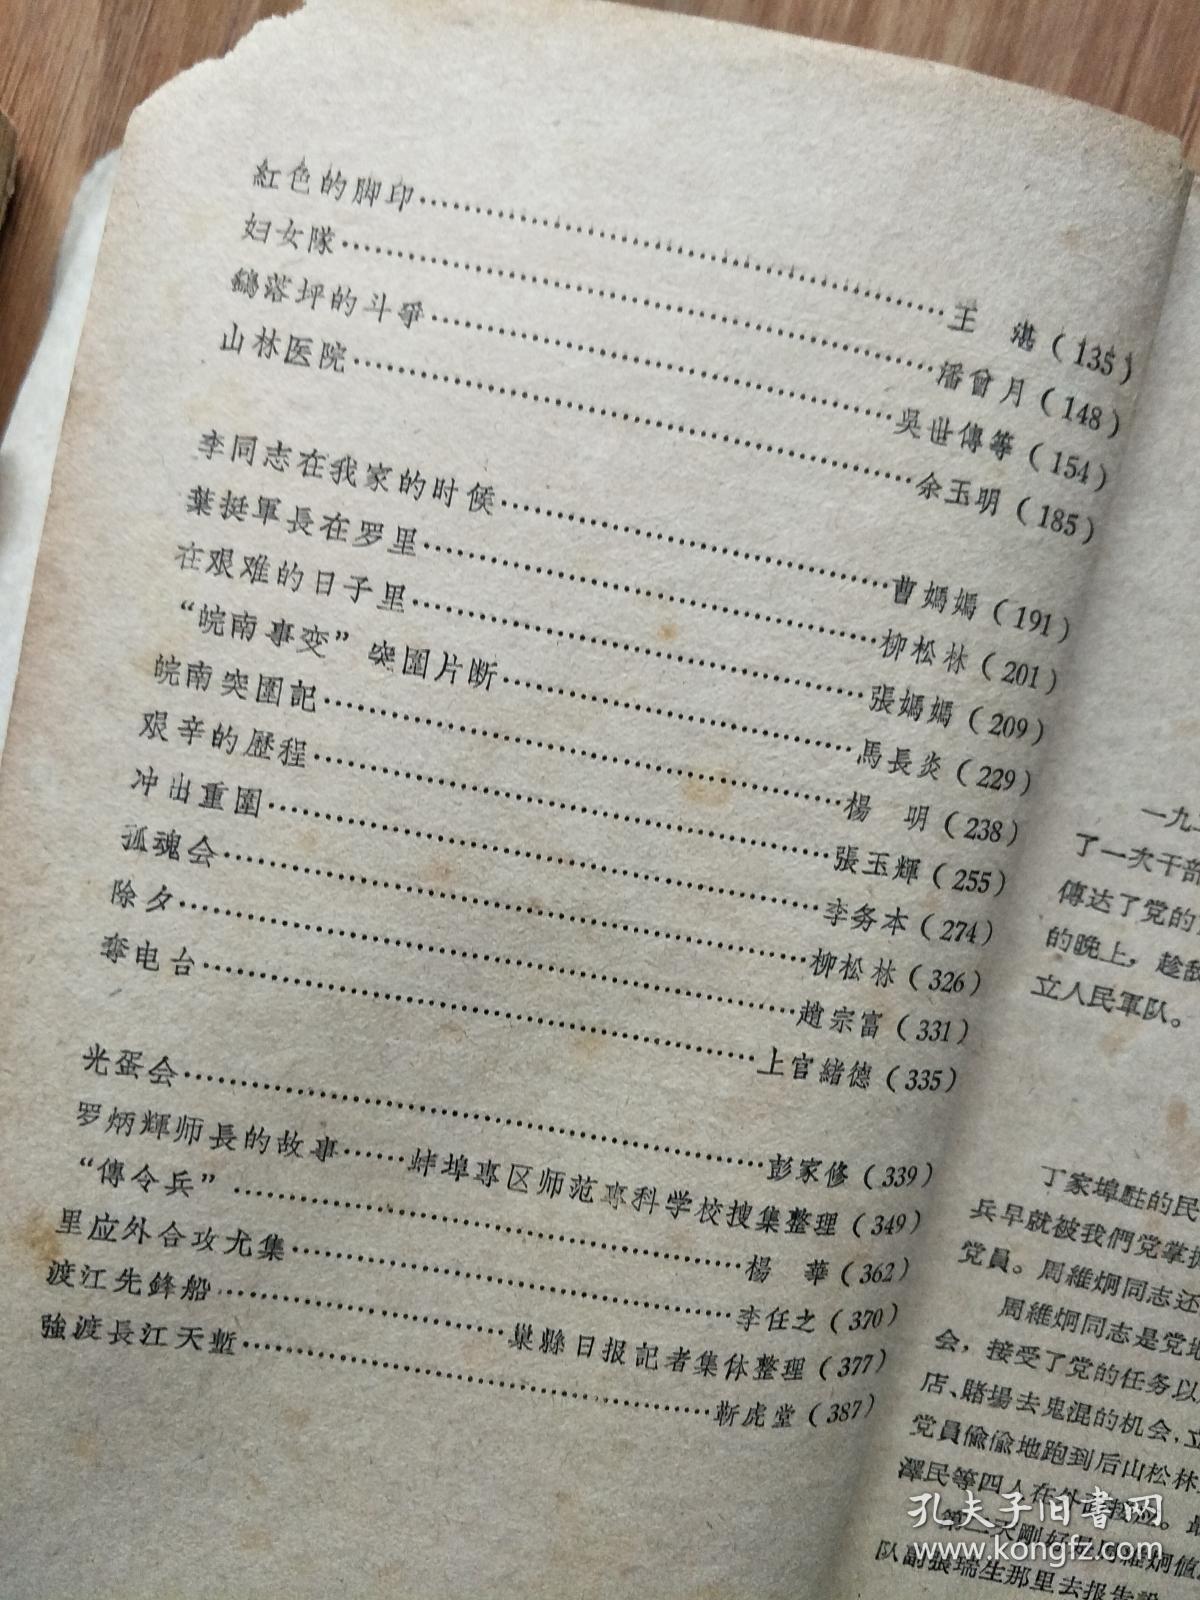 紅色的脚印……王　湛（135）
妇女隊……潘曾月（148）
鷂落坪的斗爭……吳世傳等（154）
山林医院……余玉明（185）
李同志在我家的时候……曹媽媽（191）
葉挺軍長在罗里……柳松林（201）
在艰难的日子里……張媽媽（209）
“皖南事变”突圍片断……馬長炎（229）
皖南突圍記……楊　明（238）
艰辛的歷程……張玉輝（255）
冲出重圍……李务本（274）
孤魂会……柳松林（326）
除夕……趙宗富（331）
奪电台……上官緒德（335）
光蛋会……彭家修（339）
罗炳輝师長的故事……蚌埠專区师范專科学校搜集整理（349）
“傳令兵”……楊　華（362）
里应外合攻尤集……李任之（370）
渡江先鋒船……巢縣日报記者集体整理（377）
強渡長江天塹……靳虎堂（387）
一九二
了一次干部
傳达了党的
的晚上，趁敌
立人民軍队。
丁家埠駐的民
兵早就被我們党掌握
党員。周維炯同志还
周維炯同志是党地
会，接受了党的任务以
店、賭場去鬼混的机会，立
党員偸偸地跑到后山松林
澤民等四人在外
第二天剛好是周維炯值
队副張瑞生那里去报告說
孔夫子旧书网
www.kongfz.com